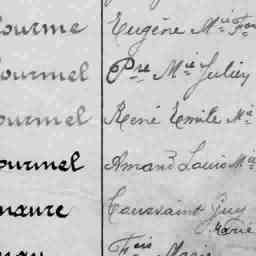 ourme Eugène Mie Fse
ourmel Pre Mie Julien
ourmel René Emile Mie
ourmel Amand Louis Mie
naure Toussaint Guy
Marie
Fois Marie